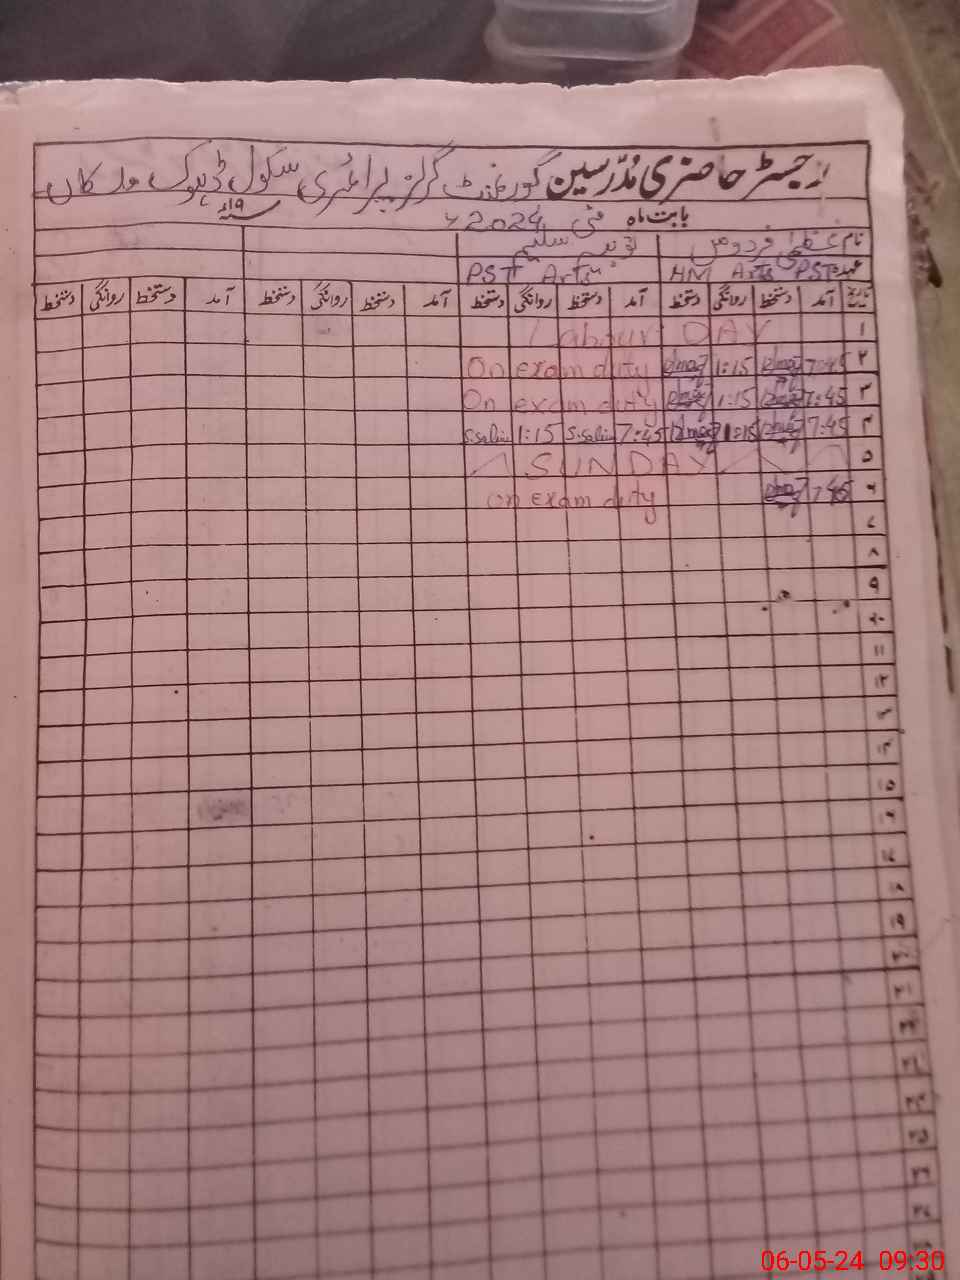 رجسٹر حاضری مُدرّسین گورنمنٹ گرلز پرائمری سکول ڈہوک
بابت ماہ مئی 2024ء سنہ ۱۹ء
نام عظمیٰ فردوس سلیم
عہدہ HM Arts PST PST Arts
تاریخ آمد دستخط روانگی دستخط آمد دستخط روانگی دستخط آمد دستخط روانگی دستخط آمد دستخط روانگی دستخط
۱ Labour DAY
۲ 7:45 1:15 On exam duty
۳ 7:45 1:15 On exam duty
۴ 7:45 1:15 7:45 S.Salim 1:15 S.Salim
۵ SUNDAY
۶ 7:45 On exam duty
۷
۸
۹
۱۰
۱۱
۱۲
۱۳
۱۴
۱۵
۱۶
۱۷
۱۸
۱۹
۲۰
۲۱
۲۲
۲۳
۲۴
۲۵
۲۶
۲۷
۲۸
06-05-24 09:30